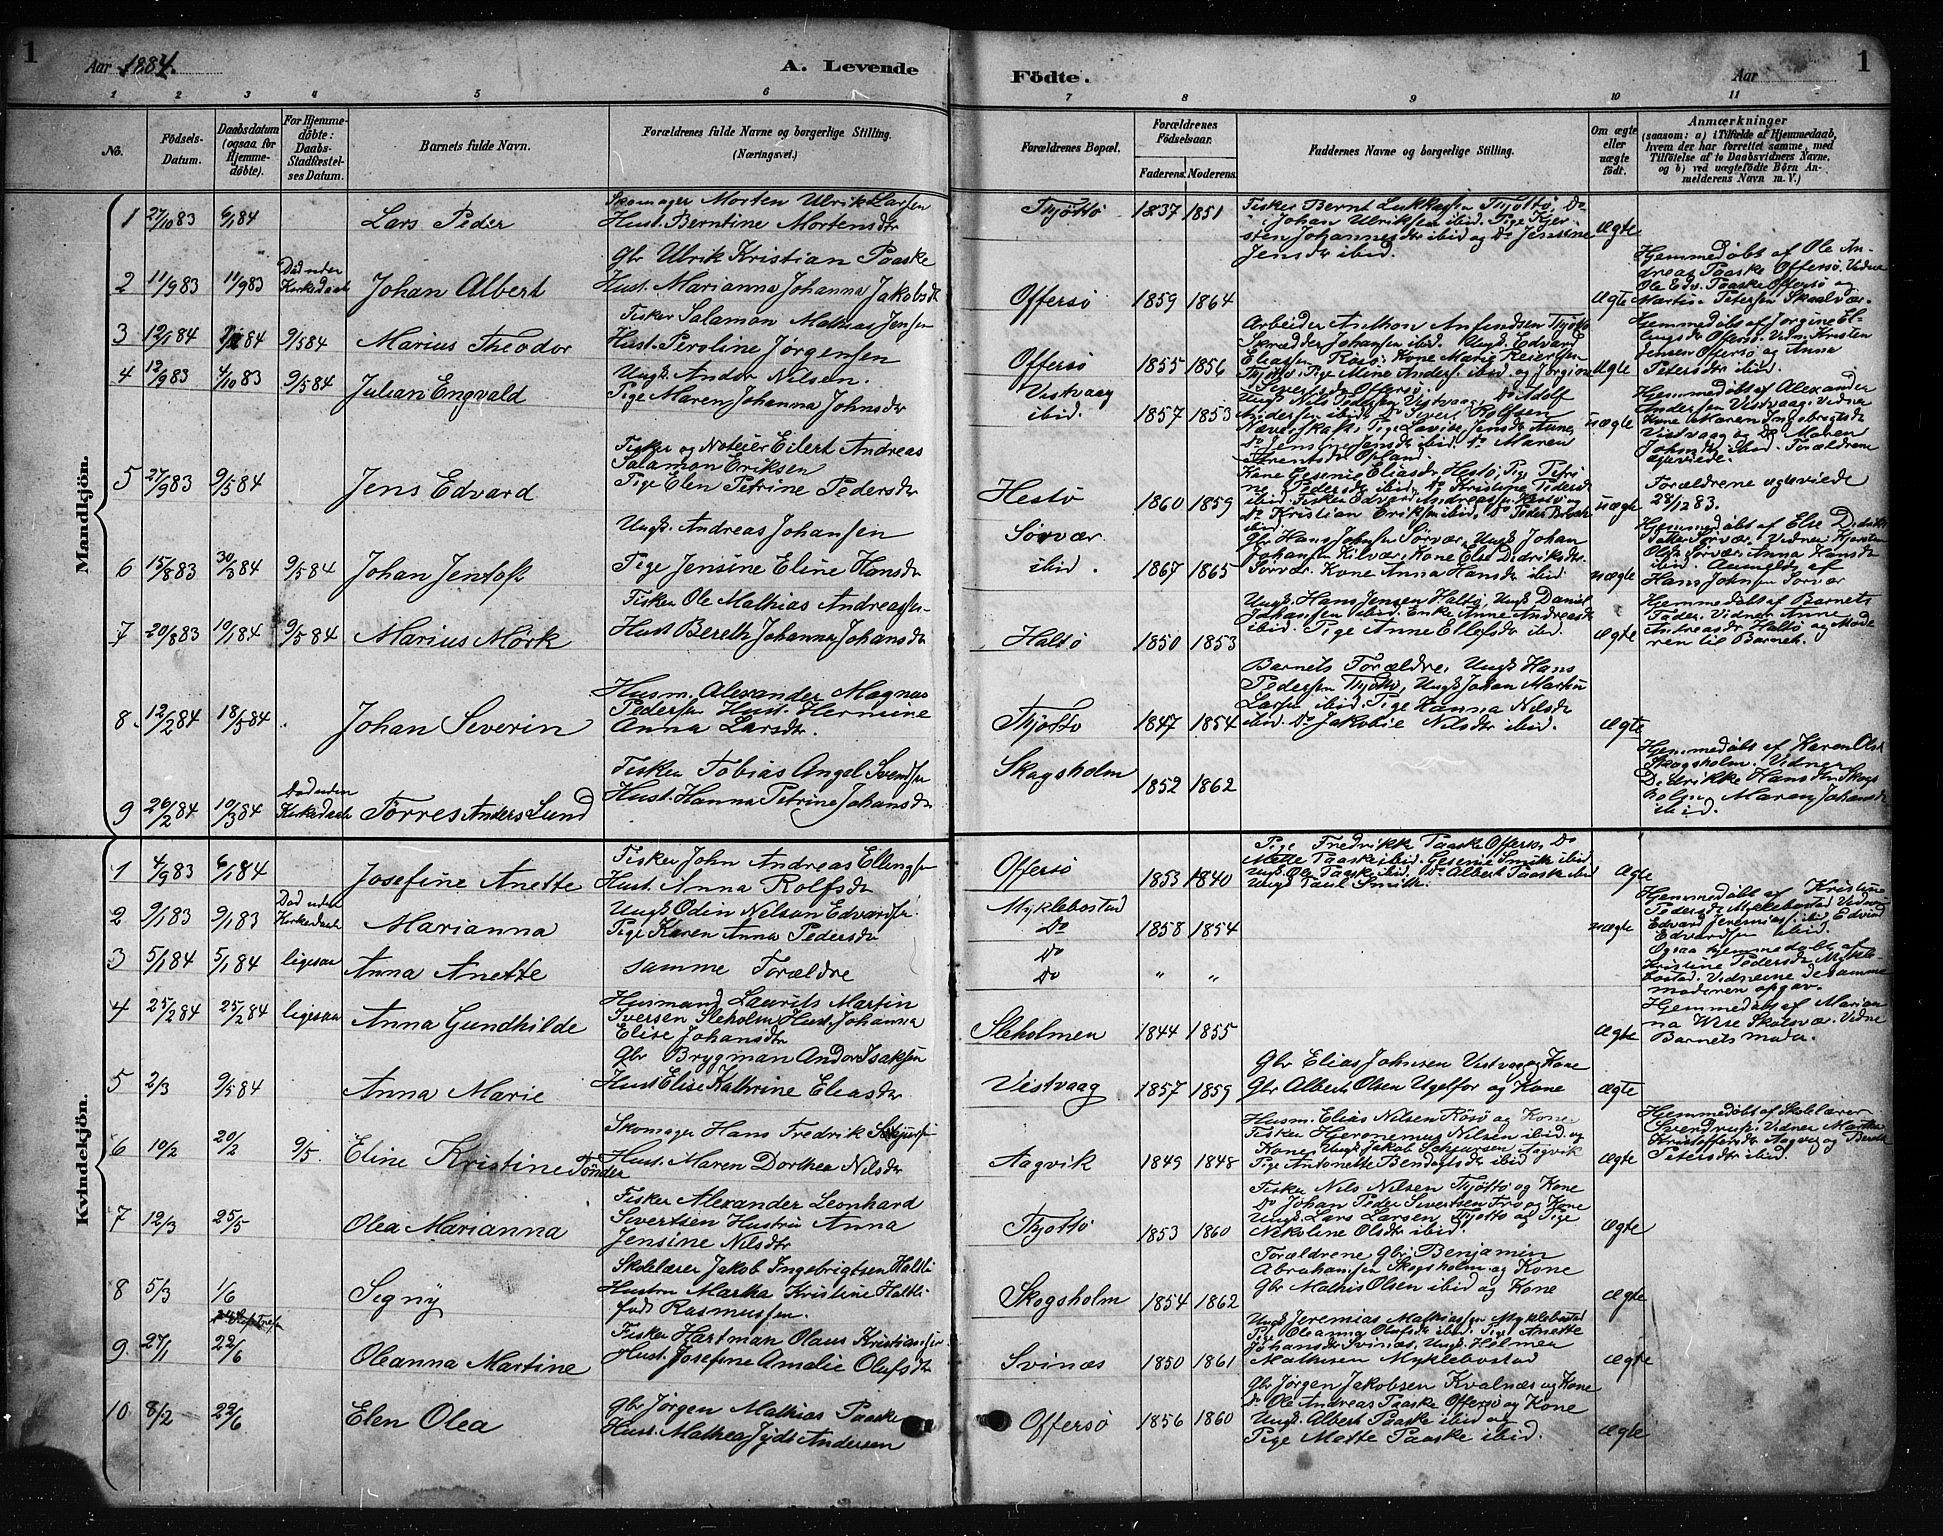 1
Aar 1884.
A. Levende
Födte.
Aar
1
1 2 3 4 5 6 7 8 9 10 11
No.
Födsels-
Datum.
Daabsdatum
(ogsaa for
Hjemme-
döbte).
For Hjemme-
döbte:
Daabs-
Stadfæstel-
ses Datum.
Barnets fulde Navn.
Forældrenes fulde Navne og borgerlige Stilling.
(Næringsvei.)
Forældrenes Bopæl.
Forældrenes
Födselsaar.
Faderens. Moderens.
Faddernes Navne og borgerlige Stilling.
Om ægte
eller
uægte
födt.
Anmærkninger
(saasom: a) i Tilfælde af Hjemmedaab,
hvem der har forrettet samme, med
Tilföielse af to Daabsvidners Navne,
og b) ved uægtefödte Börn An-
melderens Navn m. V.)
Mandkjön.
1 27/10 83 6/1 84 Lars Peder
Skomager Morten Ulrik Larsen
Hust. Berntine Mortensdtr
Thjøttø 1837 1851
Fisker Bernt Lukkassen Thjøttø, Do
Johan Ulriksen ibid. Pige Kjer-
sten Johannesdtr ibid og Do Jensine
Jensdtr ibid.
Ægte
2 11/9 83 11/9 83 Død uden
Kirkedaab Johan Albert
Gbr Ulrik Kristian Paaske
Hust. Marianna Johanna Jakobsdt
Offersø 1859 1864
Ægte
Hjemmedøbt af Ole An-
dreas Paaske Offersø. Vidne
Ole Edv. Paaske Offersø og
Martin Petersen Skaalvær.
3 12/1 84 84 9/5 84 Marius Theodor
Fisker Salamon Mathias Jensen
Hust. Peroline Jørgensen
Offersø 1855 1856
Arbeider Anthon Anfindsen Thjøttø
Skrædder Johansen ibid. Ungk. Edvard
Eliassen Rosø. Kone Marie Reiersen
Thjøttø. Pige Mine Anders. ibid. og Jørgine
Sivertsdtr Offersø.
Ægte
Hjemmedøbt af Jørgine El-
lingsdtr Offersø. Vidn. Kristen
Jensen Offersø og Anna
Petersdtr ibid.
4 12/9 83 4/10 83 9/5 84 Julian Engvald
Ungk. Andor Nilsen.
Pige Maren Johanna Johnsdtr
Vistvaag
ibid. 1857 1853
Ungk. Nils Pedersen Vistvaag, Do Adolf
Andersen ibid. Do Sivert Rolfsen
uægte
Hjemmedøbt af Alexander
Andersen Vistvaag. Vidner
Kone Maren Ingebrigtsdtr
Vistvaag og Do Maren
Johnsdtr ibid. Forældrene
ægeviede.
5 27/9 83 9/5 84 Jens Edvard
Fisker og Noteier Eilert Andreas
Salamon Eriksen
Pige Elen Petrine Pedersdtr
Hestø 1860 1859
Kone Gesenie Eliasdr Hestø, Pige Petri-
ne Pedersdtr ibid. Do Kristine Pedersdr
ibid. Fisker Edvard Andreassen Hestø og
Do Kristian Eriksen ibid, Do Peder
ibid.
uægte
Forældrene ægeviede
28/12 83.
6 15/8 83 30/3 84 9/5 84 Johan Jentoft
Ungk. Andreas Johansen
Pige Jensine Eline Hansdtr
Sørvær
ibid. 1867 1865
Gbr Hans Johnsen Sørvær, Ungk Johan
Johansen Kilvær, Kone Else Didriksdtr
Sørvær. Kone Anna Hansdtr ibid
uægte
Hjemmedøbt af Else Didriks-
datter Sørvær. Vidner Kjersten
Olsdr Sørvær. Anna Hansdtr
ibid. Anmeldt af
Hans Johnsen Sørvær
7 20/8 83 10/1 84 9/5 84 Marius Mörk
Fisker Ole Mathias Andreassen
Hust Bereth Johanna Johansdtr
Haltø 1850 1853
Ungk. Hans Jensen Haltø, Ungk Daniel
Johansen ibid. Enke Anne Andreasdtr
ibid. Pige Anne Ellefsdtr ibid.
Ægte
Hjemmedøbt af Barnets
Fader. Vidner Anne
Andreasdr Haltø og Mode-
ren til Barnet.
8. 12/2 84 18/5 84 Johan Severin
Husm. Alexander Magnus
Pedersen Hust. Hermine
Anna Larsdtr.
Thjøttø 1847 1854
Barnets Forældre, Ungk Hans
Pedersen Thjøttø, Ungk Johan Martin
Larsen ibid. Pige Hanna Nilsdr
ibid. Do Jakobie Nilsdtr ibid.
Ægte
9 26/2 84 10/3 84 Død uden
Kirkedaab Törres Anders Lund
Fisker Tobias Angel Svendsen
Hust. Hanna Petrine Johansdr
Skogsholm 1852 1862
Hjemmedøbt af Karen Olsd
Skogsholm. Vidner
Diderikke Hansdtr Skogs-
holm, Maren Johansdr
ibid.
Kvindekjön.
1 4/9 83 6/1 84 Josefine Anette
Fisker John Andreas Ellingsen
Hust. Anna Rolfsdtr
Offersø 1853 1840
Pige Fredrikke Paaske Offersø, Do
Mette Paaske ibid. Gesenie Smith ibid
Ungk. Ole Paaske ibid. Do Albert Paaske ibid
Ungk Paul Smith.
Ægte
2 9/1 83 9/1 83 Død uden
Kirkedaab Marianna
Ungk Odin Nelson Edvardsen
Pige Karen Anna Pedersdtr
Myklebostad
Do 1858 1854
uægte
Hjemmedøbt af Kristine
Pedersdr Myklebostad Vidner
Edvard Jeremiassen ibid Edvind
Edvardsen ibid.
3 5/1 84 5/1 84 ligesaa Anna Anette
samme Forældre
Do
Do " "
Ogsaa hjemmedøbt af
Kristine Pedersdr Mykle-
bostad. Vidnerne de samme
moderen opgav.
4 25/2 84 25/2 84 ligesaa Anna Gundhilde
Husmand Laurits Martin
Iversen Sleholm Hust. Johanna
Elise Johansdtr
Sleholmen 1844 1855
Ægte
Hjemmedøbt af Marian-
na Wese Skalsvær. Vidne
Barnets moder.
5 2/3 9/5 84 Anna Marie
Gbr Brygman Andor Isaksen
Hust Elise Kathrine Eleasdtr
Vistvaag 1857 1859
Gbr Elias Johnsen Vistvaag og Kone
Gbr Albert Olsen Ugelfor og Kone
Ægte
6 10/2 20/2 9/5. Eline Kristine Tönder
Skomager Hans Fredrik
Hust. Maren Dorthea Nilsdtr
Aagvik 1849 1848
Husm. Elias Nilsen Rösø og Kone
Fisker Hieronemus Nilsen ibid. og
Kone, Ungk Jakob Schjursen Aagvik
Pige Antonette Bendagtsdr ibid
Ægte
Hjemmedøbt af Skolelærer
Svendrup. Vidner Martha
Kristoffersdr Aagvig og Bereth
Petersdtr ibid.
7 12/3 25/5 Olea Marianna
Fisker Alexander Leonhard
Sivertsen Hustru Anna
Jensine Nilsdtr
Thjøttø 1853 1860
Fisker Nils Nilsen Thjøttø og Kone
Do Johan Peder Sivertsen Fro og Kone
Ungk. Lars Larsen Thjøttø og Pige
Nekoline Olsdtr ibid.
Ægte
8 5/3 1/6 Signy
Skolelærer Jakob Ingebrigtsen Haltli
Hustru Marka Kristine Haltli
født Rasmussen.
Skogsholm 1854 1862
Forældrene Gbr. Benjamin
Abrahamsen Skogsholm og Kone
Gbr Mathis Olsen ibid og Kone
Ægte
9 27/1 22/6 Oleanna Martine
Fisker Hartman Olaus Kristiansen
Hust. Josefine Amalie Olufsdtr
Svinæs 1850 1861
Ungk Jeremias Mathiassen Myklebostad
Pige Oleanna Olufsdr ibid. Pige Anette
Johansdtr Svinæs, Ungk. Helmer
Mathisen Myklebostad
Ægte
10 8/2 22/6 Elen Olea
Gbr Jørgen Mathias Paaske
Hust. Mathea Andersen
Offersø 1856 1860
Gbr Jørgen Jakobsen Kvalnæs og Kone
Do Ole Andreas Paaske Offersø og Kone
Ungk. Albert Paaske ibid og
Pige Mette Paaske ibid.
Ægte